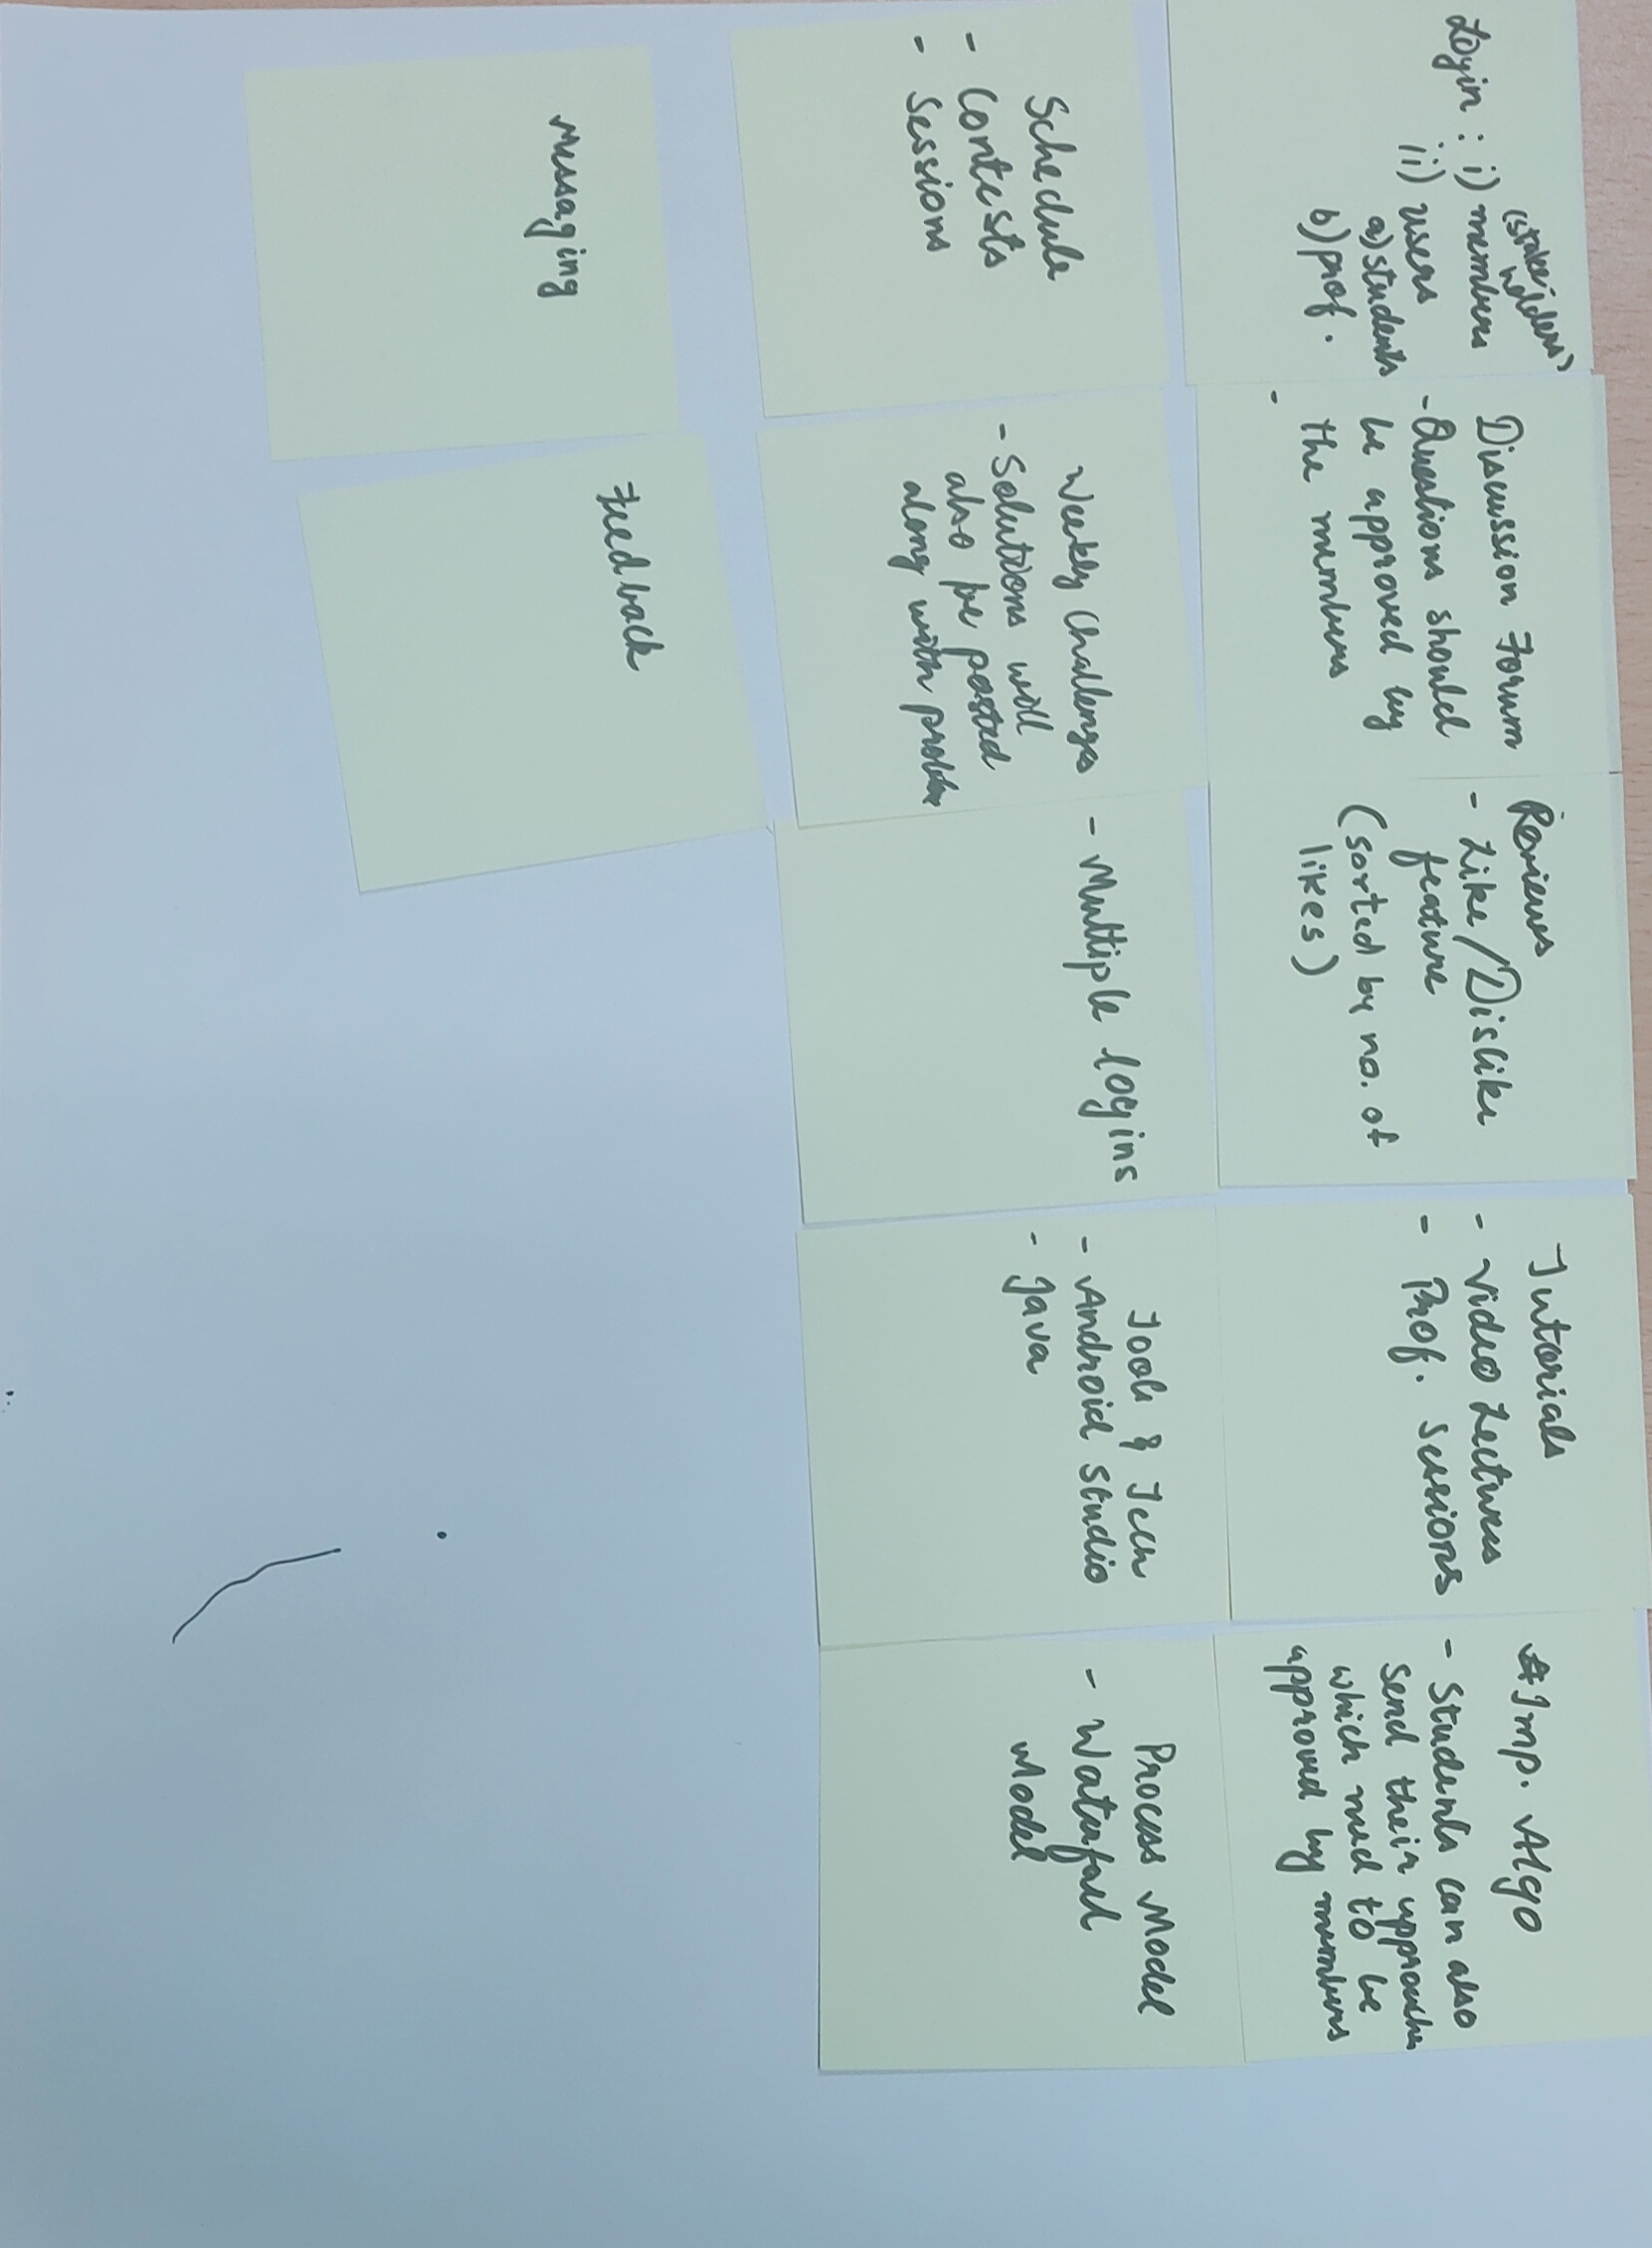 (stake-
holders)
Login : i) members
ii) users
a) students
b) prof.
Discussion Forum
- Questions should
be approved by
the members
-
Reviews
- Like/Dislike
feature
(sorted by no. of
likes)
Tutorials
- Video Lectures
- Prof. sessions
# Imp. Algo
- Students can also
send their approaches
which need to be
approved by members
Schedule
- Contests
- Sessions
Weekly Challenges
- Solutions will
also be posted
along with
- Multiple logins
Tools & Tech
- Android Studio
- Java
Process Model
- Waterfall
Model
Messaging
Feedback